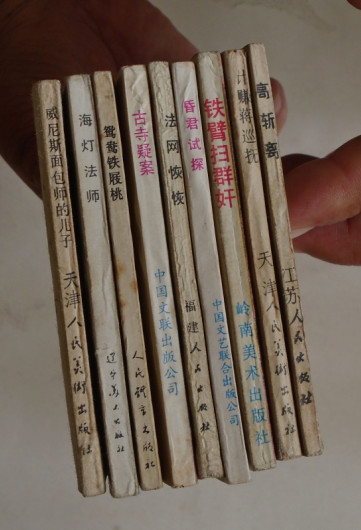 威尼斯面包师的儿子
天津人民美術出版社
海灯法师
辽宁美术出版社
鸳鸯铁屐桃
人民
出版社
古寺疑案
中国文联出版公司
法网恢恢
福建人民出版社
昏君试探
中国文艺联合出版公司
铁臂扫群奸
岭南美术出版社
计赚蒋巡抚
天津人民美術出版社
高斩离
江苏人民出版社